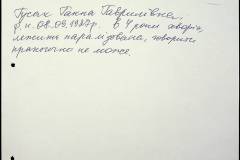 Гусак Ганна Гаврилівна.
р.н. 08.09.1927г. В 4 роки хворіє,
лежить паралізована, говорити
практично не може.